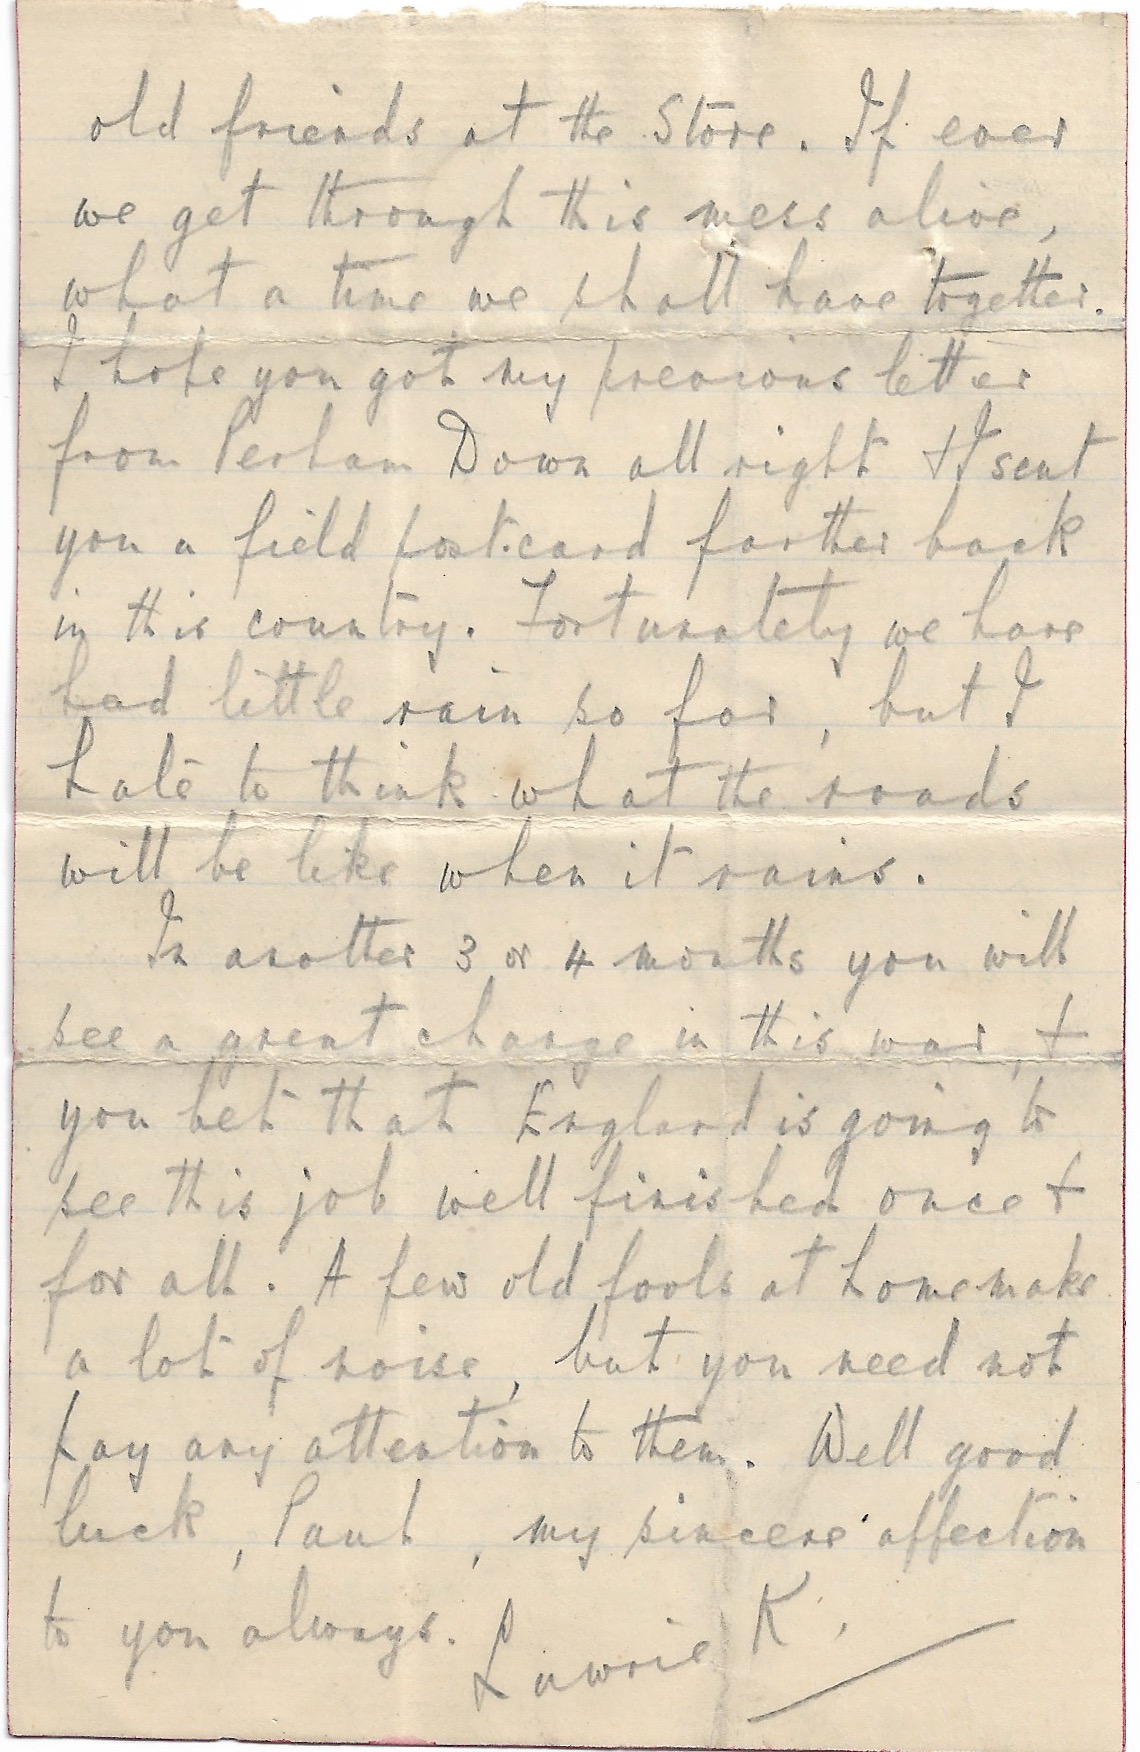 old friends at the Store. If ever
we get through this mess alive,
what a time we shall have together.
I hope you got my previous letter
from Perham Down all right & I sent
you a field post.card farther back
in this country. Fortunately we have
had little rain so far, but I
hate to think what the roads
will be like when it rains.
In another 3 or 4 months you will
see a great change in this war, &
you bet that England is going to
see this job well finished once &
for all. A few old fools at home make
a lot of noise, but you need not
pay any attention to them. Well good
luck, Paul, my sincere affection
to you always.
Lawrie K.